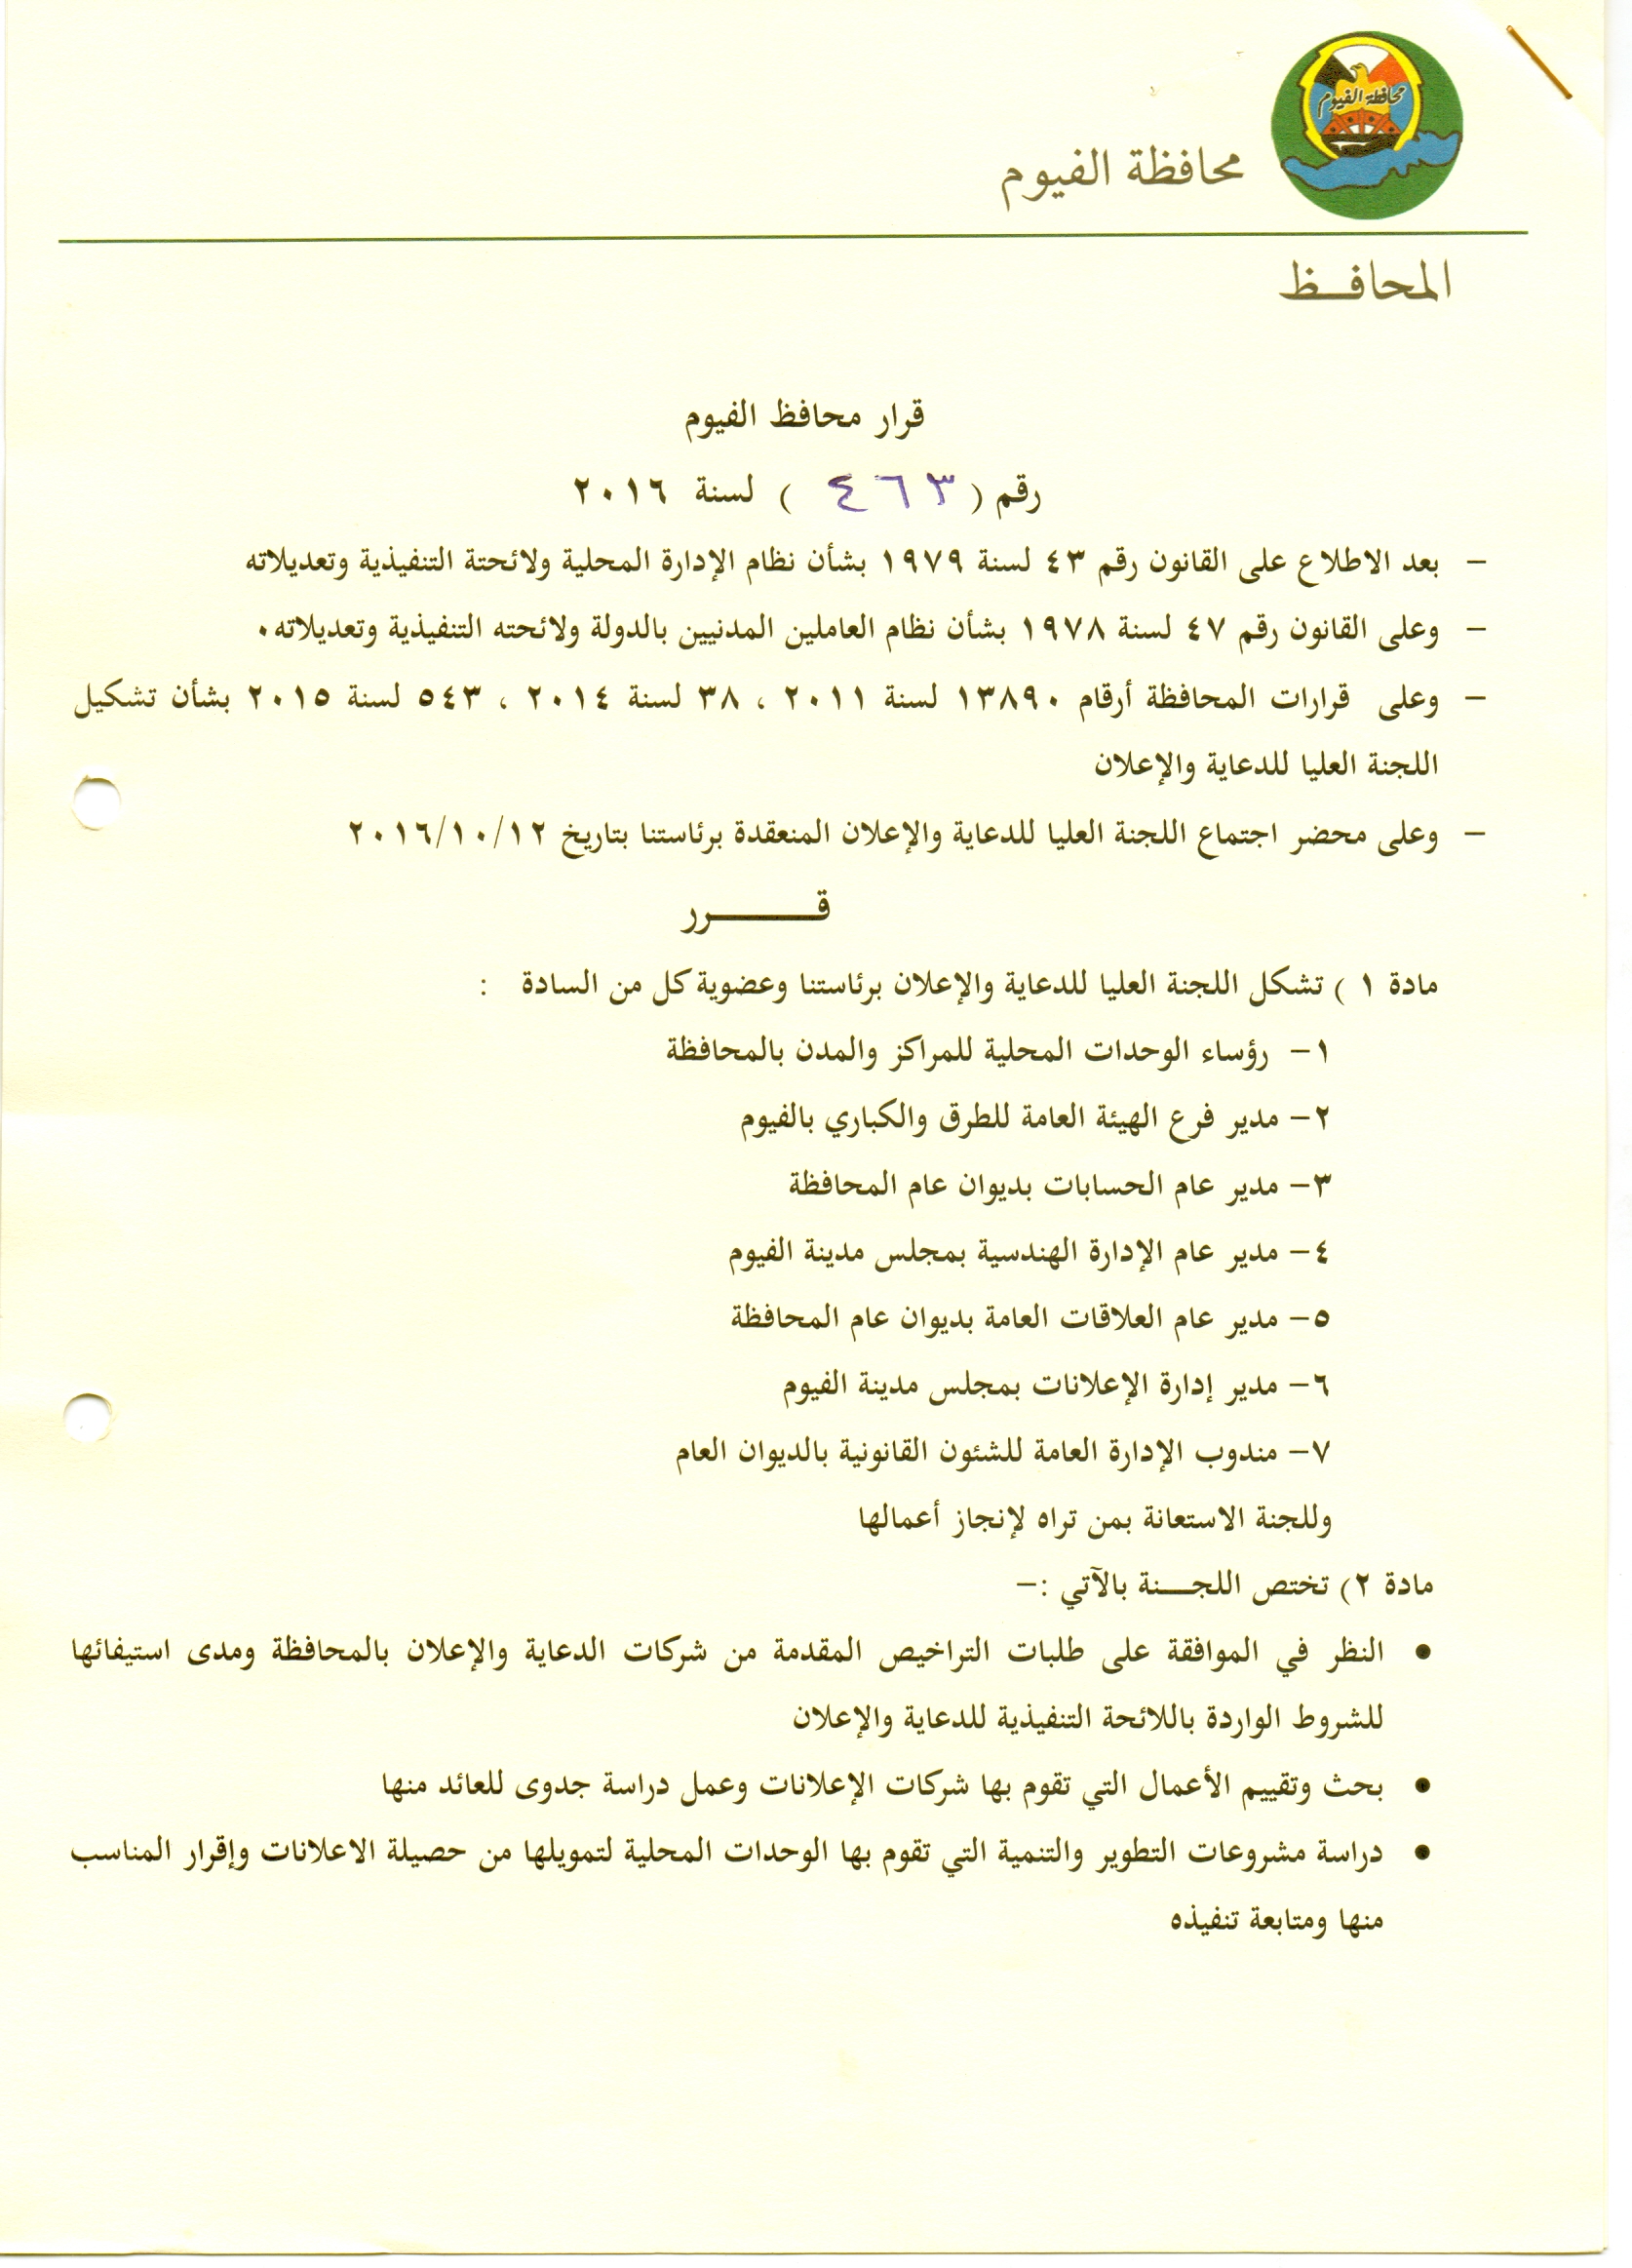 محافظة الفيوم
محافظة الفيوم
المحافـــظ
قرار محافظ الفيوم
رقم ( ٤٦٣ ) لسنة ٢٠١٦
– بعد الاطلاع على القانون رقم ٤٣ لسنة ١٩٧٩ بشأن نظام الإدارة المحلية ولائحتة التنفيذية وتعديلاته
– وعلى القانون رقم ٤٧ لسنة ١٩٧٨ بشأن نظام العاملين المدنيين بالدولة ولائحته التنفيذية وتعديلاته.
– وعلى قرارات المحافظة أرقام ١٣٨٩٠ لسنة ٢٠١١ ، ٣٨ لسنة ٢٠١٤ ، ٥٤٣ لسنة ٢٠١٥ بشأن تشكيل
اللجنة العليا للدعاية والإعلان
– وعلى محضر اجتماع اللجنة العليا للدعاية والإعلان المنعقدة برئاستنا بتاريخ ٢٠١٦/١٠/١٢
قـــــــرر
مادة ١ ) تشكل اللجنة العليا للدعاية والإعلان برئاستنا وعضوية كل من السادة :
١– رؤساء الوحدات المحلية للمراكز والمدن بالمحافظة
٢– مدير فرع الهيئة العامة للطرق والكباري بالفيوم
٣– مدير عام الحسابات بديوان عام المحافظة
٤– مدير عام الإدارة الهندسية بمجلس مدينة الفيوم
٥– مدير عام العلاقات العامة بديوان عام المحافظة
٦– مدير إدارة الإعلانات بمجلس مدينة الفيوم
٧– مندوب الإدارة العامة للشئون القانونية بالديوان العام
وللجنة الاستعانة بمن تراه لإنجاز أعمالها
مادة ٢) تختص اللجـــنة بالآتي :–
• النظر في الموافقة على طلبات التراخيص المقدمة من شركات الدعاية والإعلان بالمحافظة ومدى استيفائها
للشروط الواردة باللائحة التنفيذية للدعاية والإعلان
• بحث وتقييم الأعمال التي تقوم بها شركات الإعلانات وعمل دراسة جدوى للعائد منها
• دراسة مشروعات التطوير والتنمية التي تقوم بها الوحدات المحلية لتمويلها من حصيلة الاعلانات وإقرار المناسب
منها ومتابعة تنفيذه